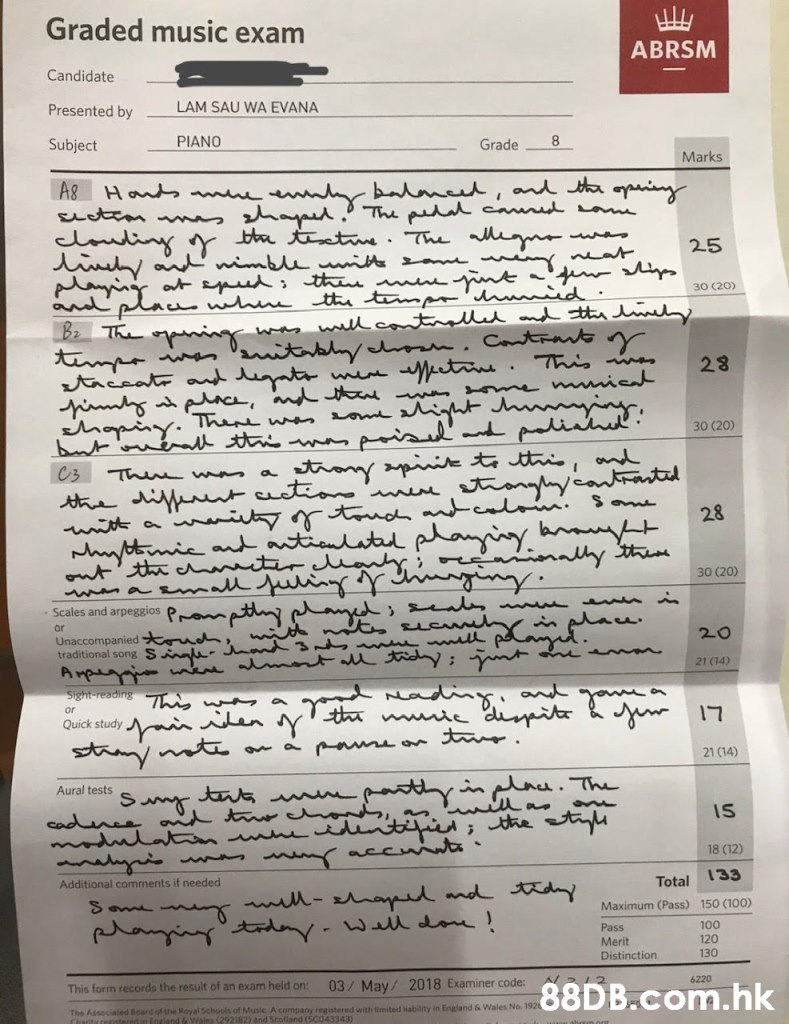 Graded music exam
ABRSM
Candidate
Presented by LAM SAU WA EVANA
Subject PIANO Grade 8
Marks
A8 Hands were evenly balanced, and the opening
section was shaped. The pedal caused some
clouding of the texture. The allegro was
lively and nimble with some very neat
playing at speed; there were just a few slips
and places where the tempo hurried.
25
30 (20)
B2 The opening was well controlled and the lively
tempo was suitably chosen. Contrasts of
staccato and legato were effective. This was
firmly in place, and there was some musical
shaping. There was some slight hurrying,
but overall this was poised and polished.
28
30 (20)
C3 There was a strong spirit to this, and
the different sections were strongly contrasted
with a variety of touch and colour. Some
rhythmic and articulated playing brought
out the character clearly; occasionally there
was a small feeling of hurrying.
28
30 (20)
Scales and arpeggios Promptly played; scales were even in
or
Unaccompanied touch, with notes securely in place.
traditional song Single-hand 3rds were well played.
Arpeggios were almost all tidy; just one error
20
21 (14)
Sight-reading This was a good reading, and gave a
or
Quick study fair idea of the music despite a few
stray notes or a pause or two.
17
21 (14)
Aural tests Sung tests were partly in place. The
cadence and two chords, as well as one
modulation were identified; the style
analysis was very accurate.
15
18 (12)
Additional comments if needed
Some very well-shaped and tidy
playing today. Well done!
Total 133
Maximum (Pass) 150 (100)
Pass 100
Merit 120
Distinction 130
This form records the result of an exam held on: 03/ May/ 2018 Examiner code:
6220
The Associated Board of the Royal Schools of Music. A company registered with limited liability in England & Wales No.
Charity registered in England & Wales (292182) and Scotland (SC043343)
88DB.com.hk